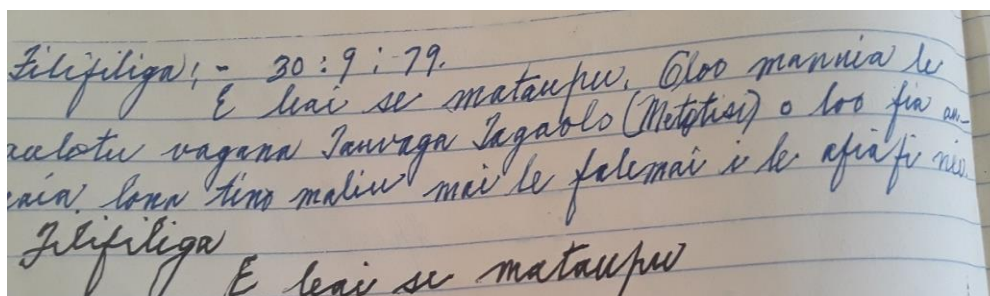 Filifiliga; - 30:9:79.
E leai se mataupu. Oloo manuia le
aulotu vagana Tauvaga Tagaolo (Metotisi) o loo fia au-
naia lona tino maliu mai le falemai i le afiafi nei.
Filifiliga
E leai se mataupu